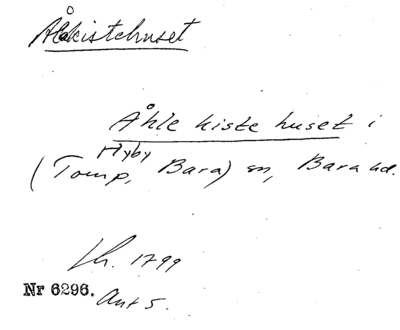 Ålakistehuset
Åhle kiste huset i
Hyby
(Torup, Bara) sn, Bara hd.
Lh. 1799
Nr 6296. Ant 5.